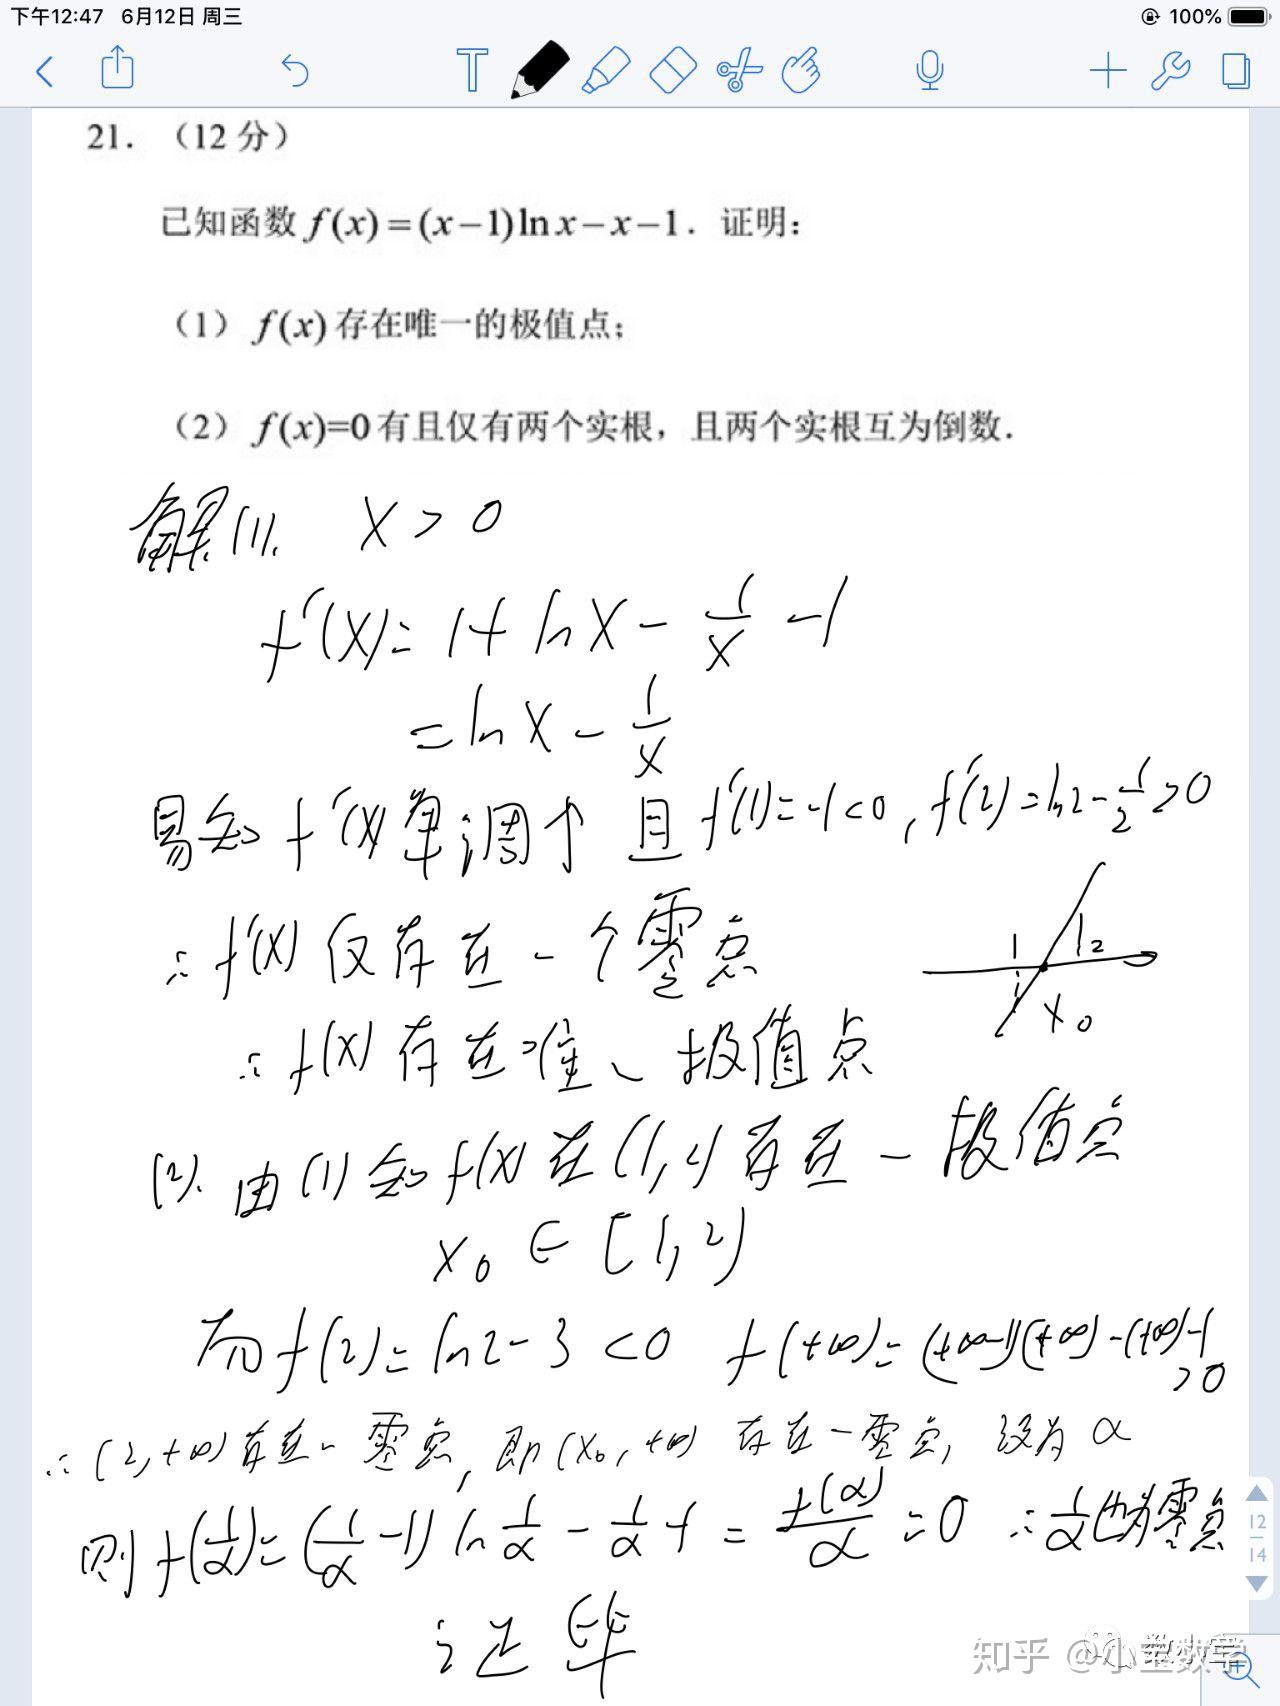 下午12:47 6月12日 周三
100%
21. （12分）
已知函数 f(x)=(x−1)ln x−x−1. 证明:
（1） f(x) 存在唯一的极值点;
（2） f(x)=0 有且仅有两个实根，且两个实根互为倒数.
解(1). x>0
f'(x)=1+lnx-1/x-1
=lnx-1/x
易知 f'(x)单调↑ 且 f'(1)=-1<0, f'(2)=ln2-1/2>0
∴f'(x) 仅存在一个零点
1 2
x₀
∴f(x)存在唯一极值点
(2). 由(1)知f(x)在(1,2)存在一极值点
x₀∈[1,2)
而f(2)=ln2-3<0 f(+∞)=(+∞-1)(+∞)-(+∞)-1
>0
∴(2,+∞)存在一零点, 即(x₀,+∞)存在一零点, 设为α
则f(1/α)=(1/α-1)ln1/α-1/α-1=f(α)/α=0 ∴1/α也为零点
证毕
12
14
知乎 @小宝数学